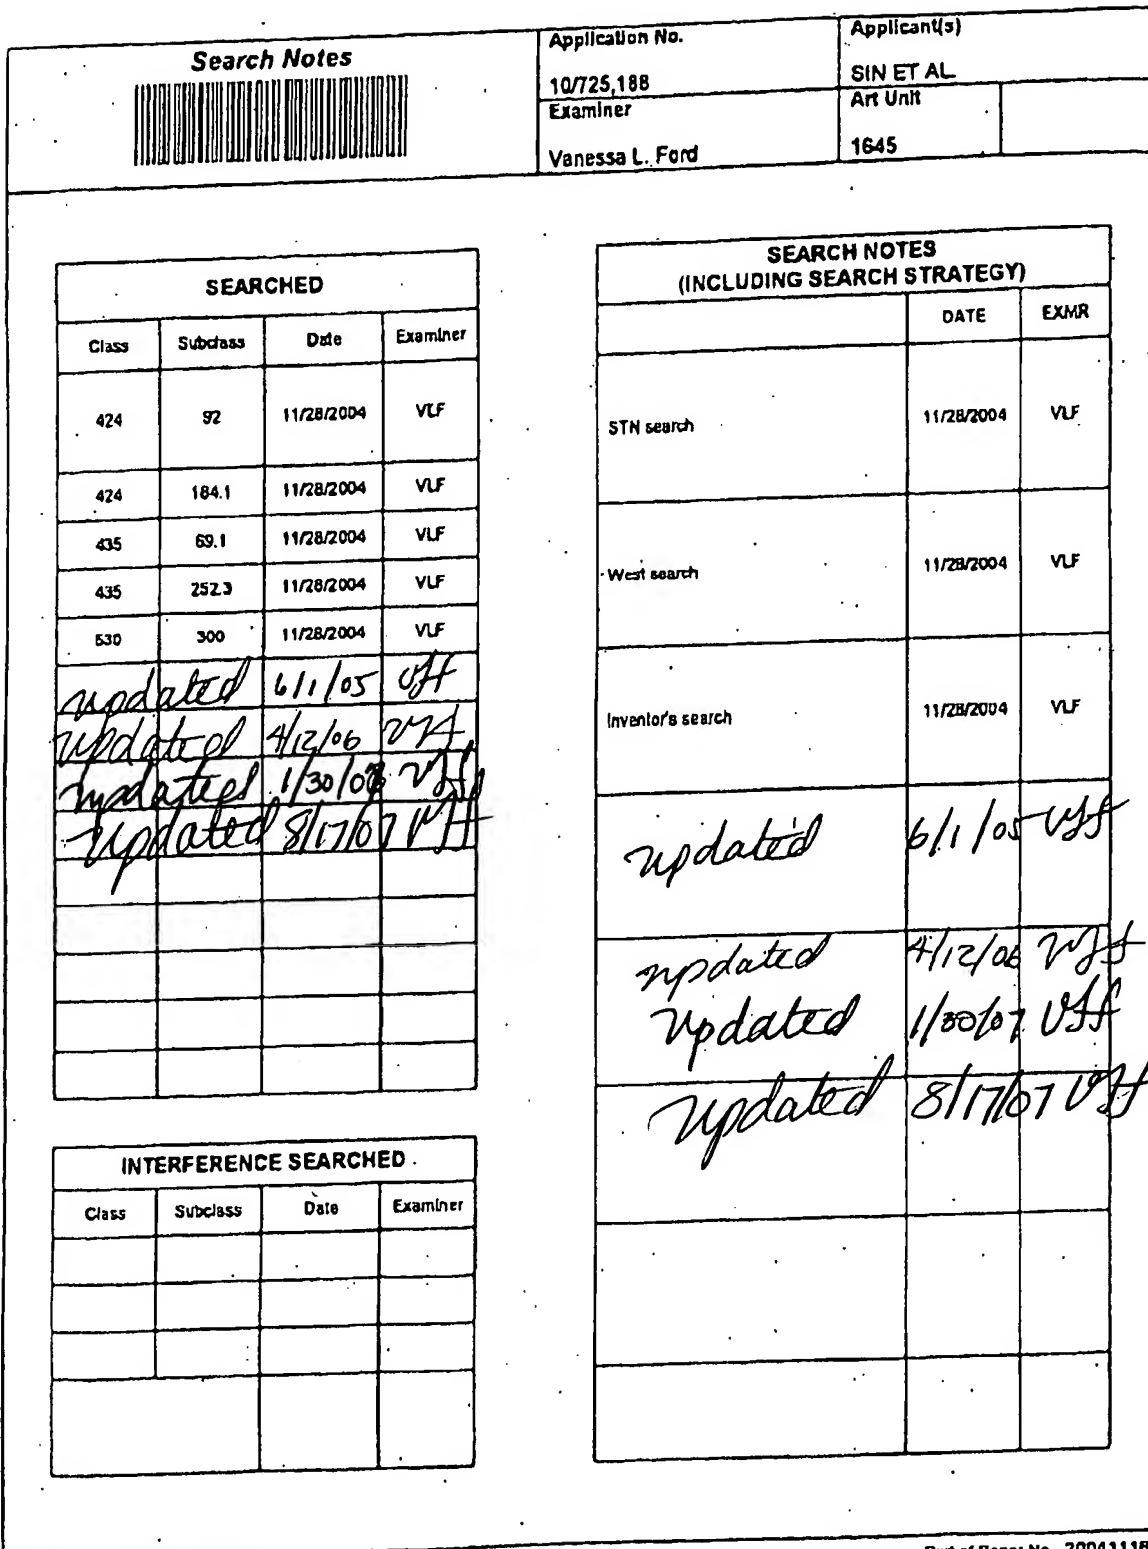 Search Notes
Application No.
10/725,188
Applicant(s)
SIN ET AL.
Examiner
Vanessa L. Ford
Art Unit
1645
SEARCHED
Class Subclass Date Examiner
424 92 11/28/2004 VLF
424 184.1 11/28/2004 VLF
435 69.1 11/28/2004 VLF
435 252.3 11/28/2004 VLF
530 300 11/28/2004 VLF
updated 6/1/05 vlf
updated 4/12/06 vlf
updated 1/30/07 vlf
updated 8/17/07 vlf
INTERFERENCE SEARCHED
Class Subclass Date Examiner
SEARCH NOTES
(INCLUDING SEARCH STRATEGY)
DATE EXMR
STN search 11/28/2004 VLF
West search 11/28/2004 VLF
Inventor's search 11/28/2004 VLF
updated 6/1/05 vlf
updated 4/12/06 vlf
updated 1/30/07 vlf
updated 8/17/07 vlf
Part of Paper No. 20041116